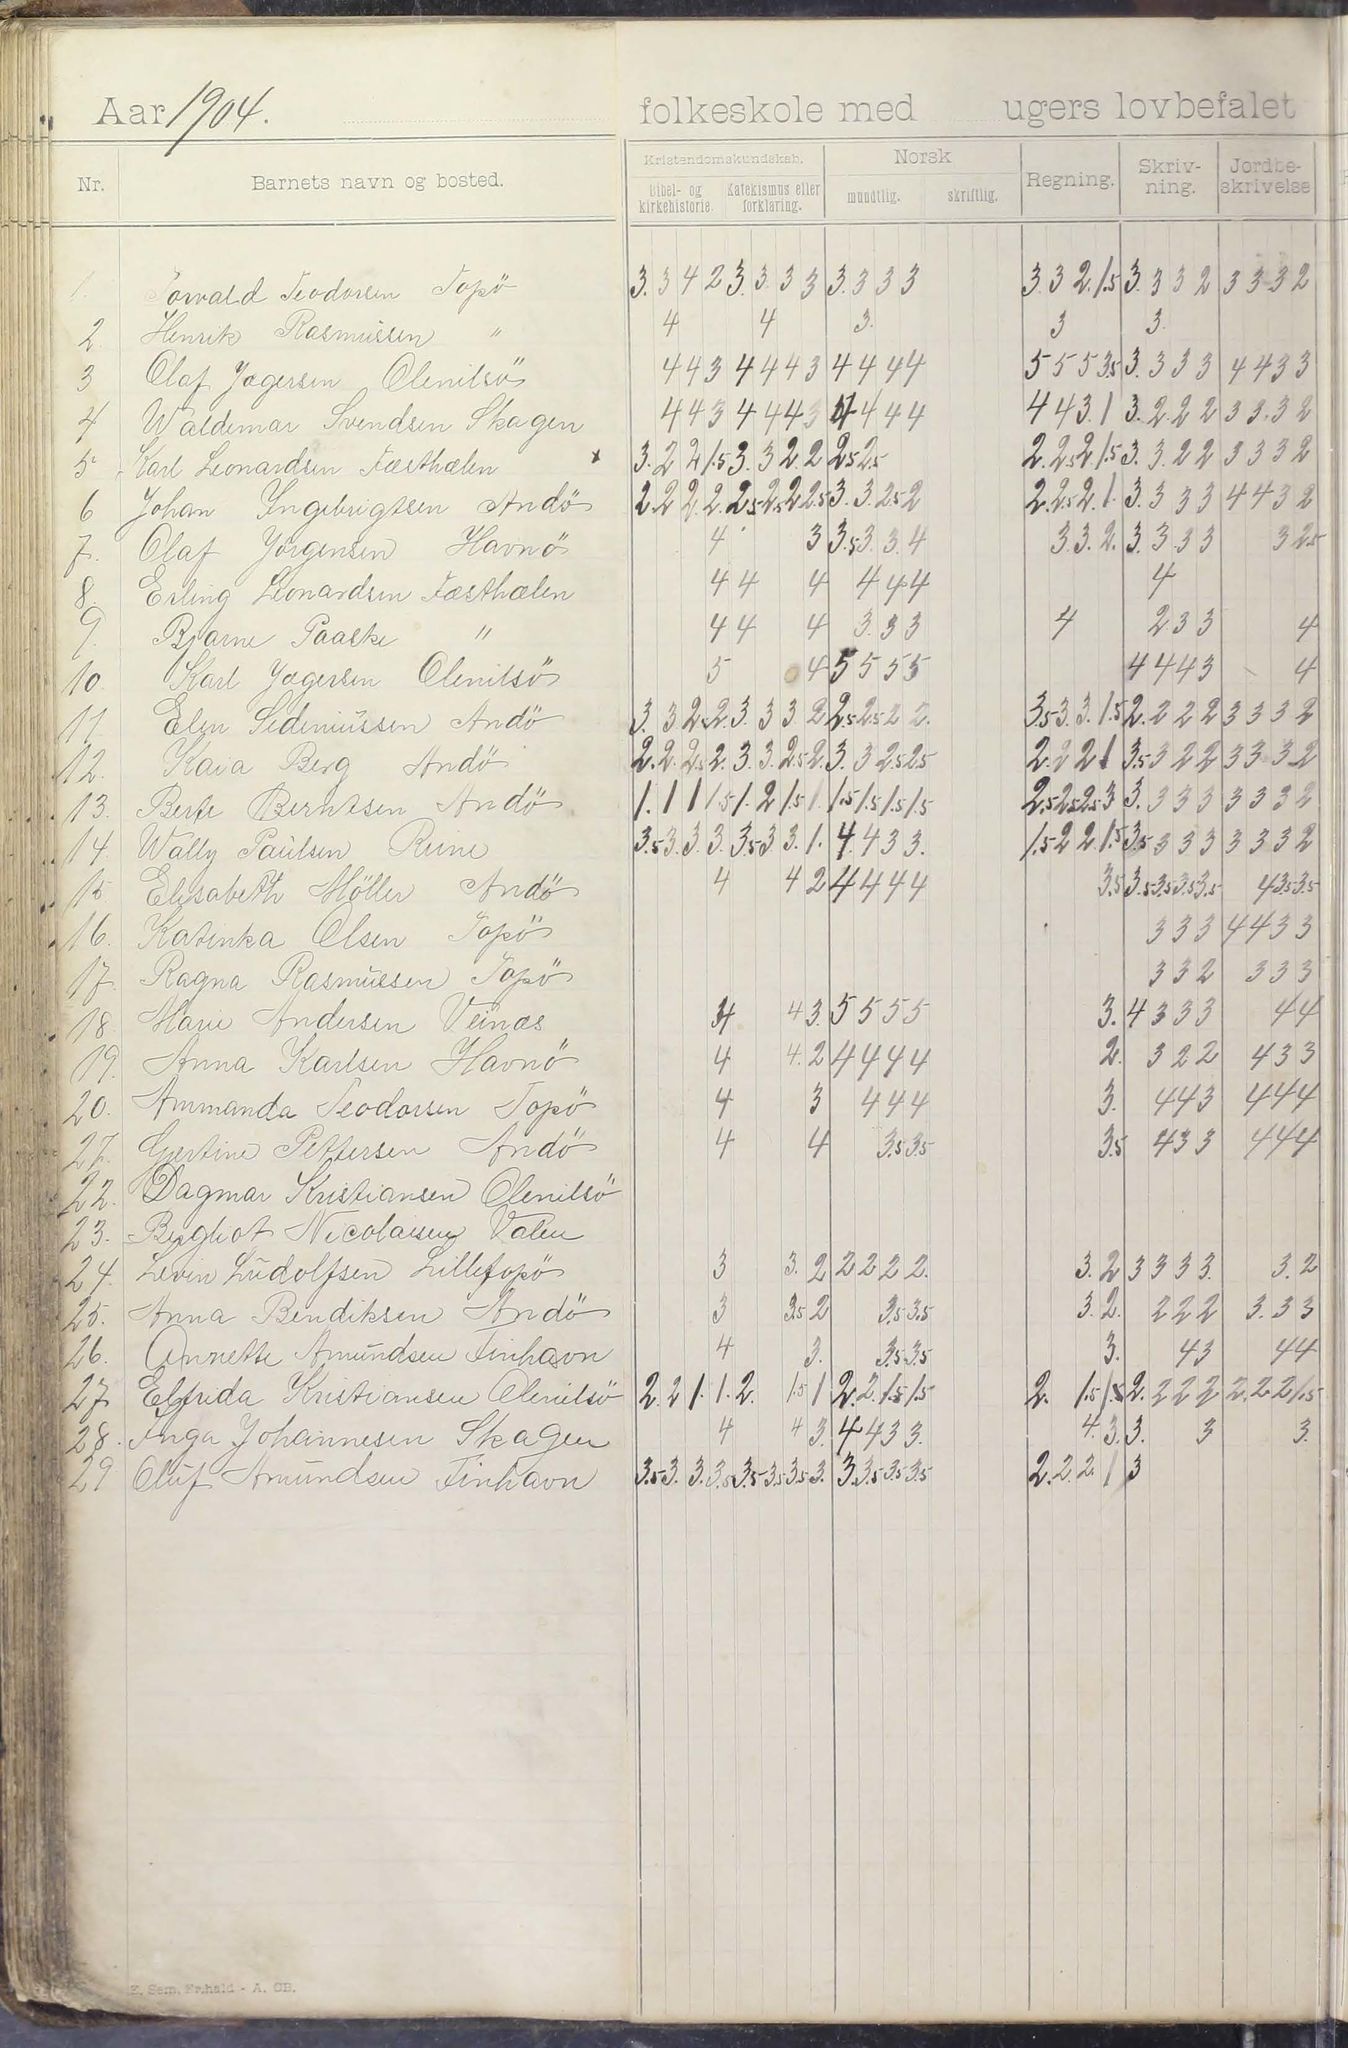 Aar 1904. folkeskole med ugers lovbefalet
Nr. Barnets navn og bosted. Kristendomskundskab. Norsk Regning. Skriv- ning. Jordbe- skrivelse
Bibel- og kirkehistorie. Katekismus eller forklaring. mundtlig. skriftlig.
1. Torvald Teodorsen Topö 3. 3 4 2 3. 3. 3 3 3. 3 3 3 3. 3 2. 1.5 3. 3 3 2 3 3 3 2
2. Henrik Rasmussen " 4 4 3. 3 3.
3 Olaf Jægersen Olenilsö 4 4 3 4 4 4 3 4 4 4 4 5 5 5 3.5 3. 3 3 3 4 4 3 3
4 Waldemar Svendsen Skagen 4 4 3 4 4 4 3 4 4 4 4 4 4 3. 1 3. 2 2 2 3 3. 3 2
5 Karl Leonardsen Fæsthælen 3. 2 2 1.5 3. 3 2. 2 2.5 2.5 2. 2.5 2 1.5 3. 3. 2 2 3 3 3 2
6 Johan Ingebrigtsen Andö 2. 2 2 2. 2.5 2.5 2 2.5 3. 3. 2.5 2 2. 2.5 2. 1. 3. 3 3 3 4 4 3 2
7. Olaf Jörgensen Havnö 4 3 3.5 3. 3. 4 3. 3. 2. 3. 3 3 3 3 2.5
8. Erling Leonardsen Fæsthælen 4 4 4 4 4 4 4
9. Bjarne Paaske " 4 4 4 3. 3 3 4 2 3 3 4
10. Karl Jægersen Olenilsö 5 4 5 5 5 5 4 4 4 3 4
11. Elen Sideniussen Andö 3. 3 2.5 2. 3. 3 3. 2 2.5 2.5 2 2. 3.5 3. 3. 1.5 2. 2 2 2 3 3 3 2
12. Kaia Berg Andö 2. 2. 2.5 2. 3. 3. 2.5 2. 3. 3 2.5 2.5 2. 2 2 1 3.5 3 2 2 3 3 3 2
13. Berte Berntsen Andö 1. 1 1 1.5 1. 2 1.5 1. 1.5 1.5 1.5 1.5 2.5 2.5 2.5 3 3. 3 3 3 3 3 3 2
14. Wally Paulsen Rune 3.5 3. 3. 3. 3.5 3. 3. 1. 4. 4 3 3. 1.5 2 2. 1.5 3.5 3 3 3 3 3 3 2
15 Elisabeth Möller Andö 4 4 2 4 4 4 4 3.5 3.5 3.5 3.5 3.5 4 3.5 3.5
16. Katinka Olsen Topö 3 3 3 4 4 3 3
17. Ragna Rasmussen Topö 3 3 2 3 3 3
18. Marie Andersen Veinæs 4 4 3. 5 5 5 5 3. 4 3 3 3 4 4
19. Anna Karlsen Havnö 4 4. 2 4 4 4 4 2. 3 2 2 4 3 3
20. Ammanda Teodorsen Topö 4 3 4 4 4 3. 4 4 3 4 4 4
21. Gjertine Pettersen Andö 4 4 3.5 3.5 3.5 4 3 3 4 4 4
22. Dagmar Kristiansen Olenilsö
23. Bergliot Nicolaisen Valen
24. Levin Ludolfsen Lilletopö 3 3. 2 2 2 2 2. 3. 2 3 3 3 3. 3. 2
25. Anna Bendiksen Andö 3 3.5 2 3.5 3.5 3. 2. 2 2 2 3. 3 3
26. Annette Amundsen Finhavn 4 3. 3.5 3.5 3. 4 3 4 4
27 Elfrida Kristiansen Olenilsö 2. 2 1. 1. 2. 1.5 1 2. 2. 1.5 1.5 2. 1.5 1.5 2. 2 2 2 2. 2. 2 1.5
28. Inga Johannesen Skagen 4 4 3. 4 4 3 3. 4. 3. 3. 3 3.
29 Oluf Amundsen Finhavn 3.5 3. 3. 3.5 3.5 3.5 3.5 3. 3. 3.5 3.5 3.5 2. 2. 2. 1 3